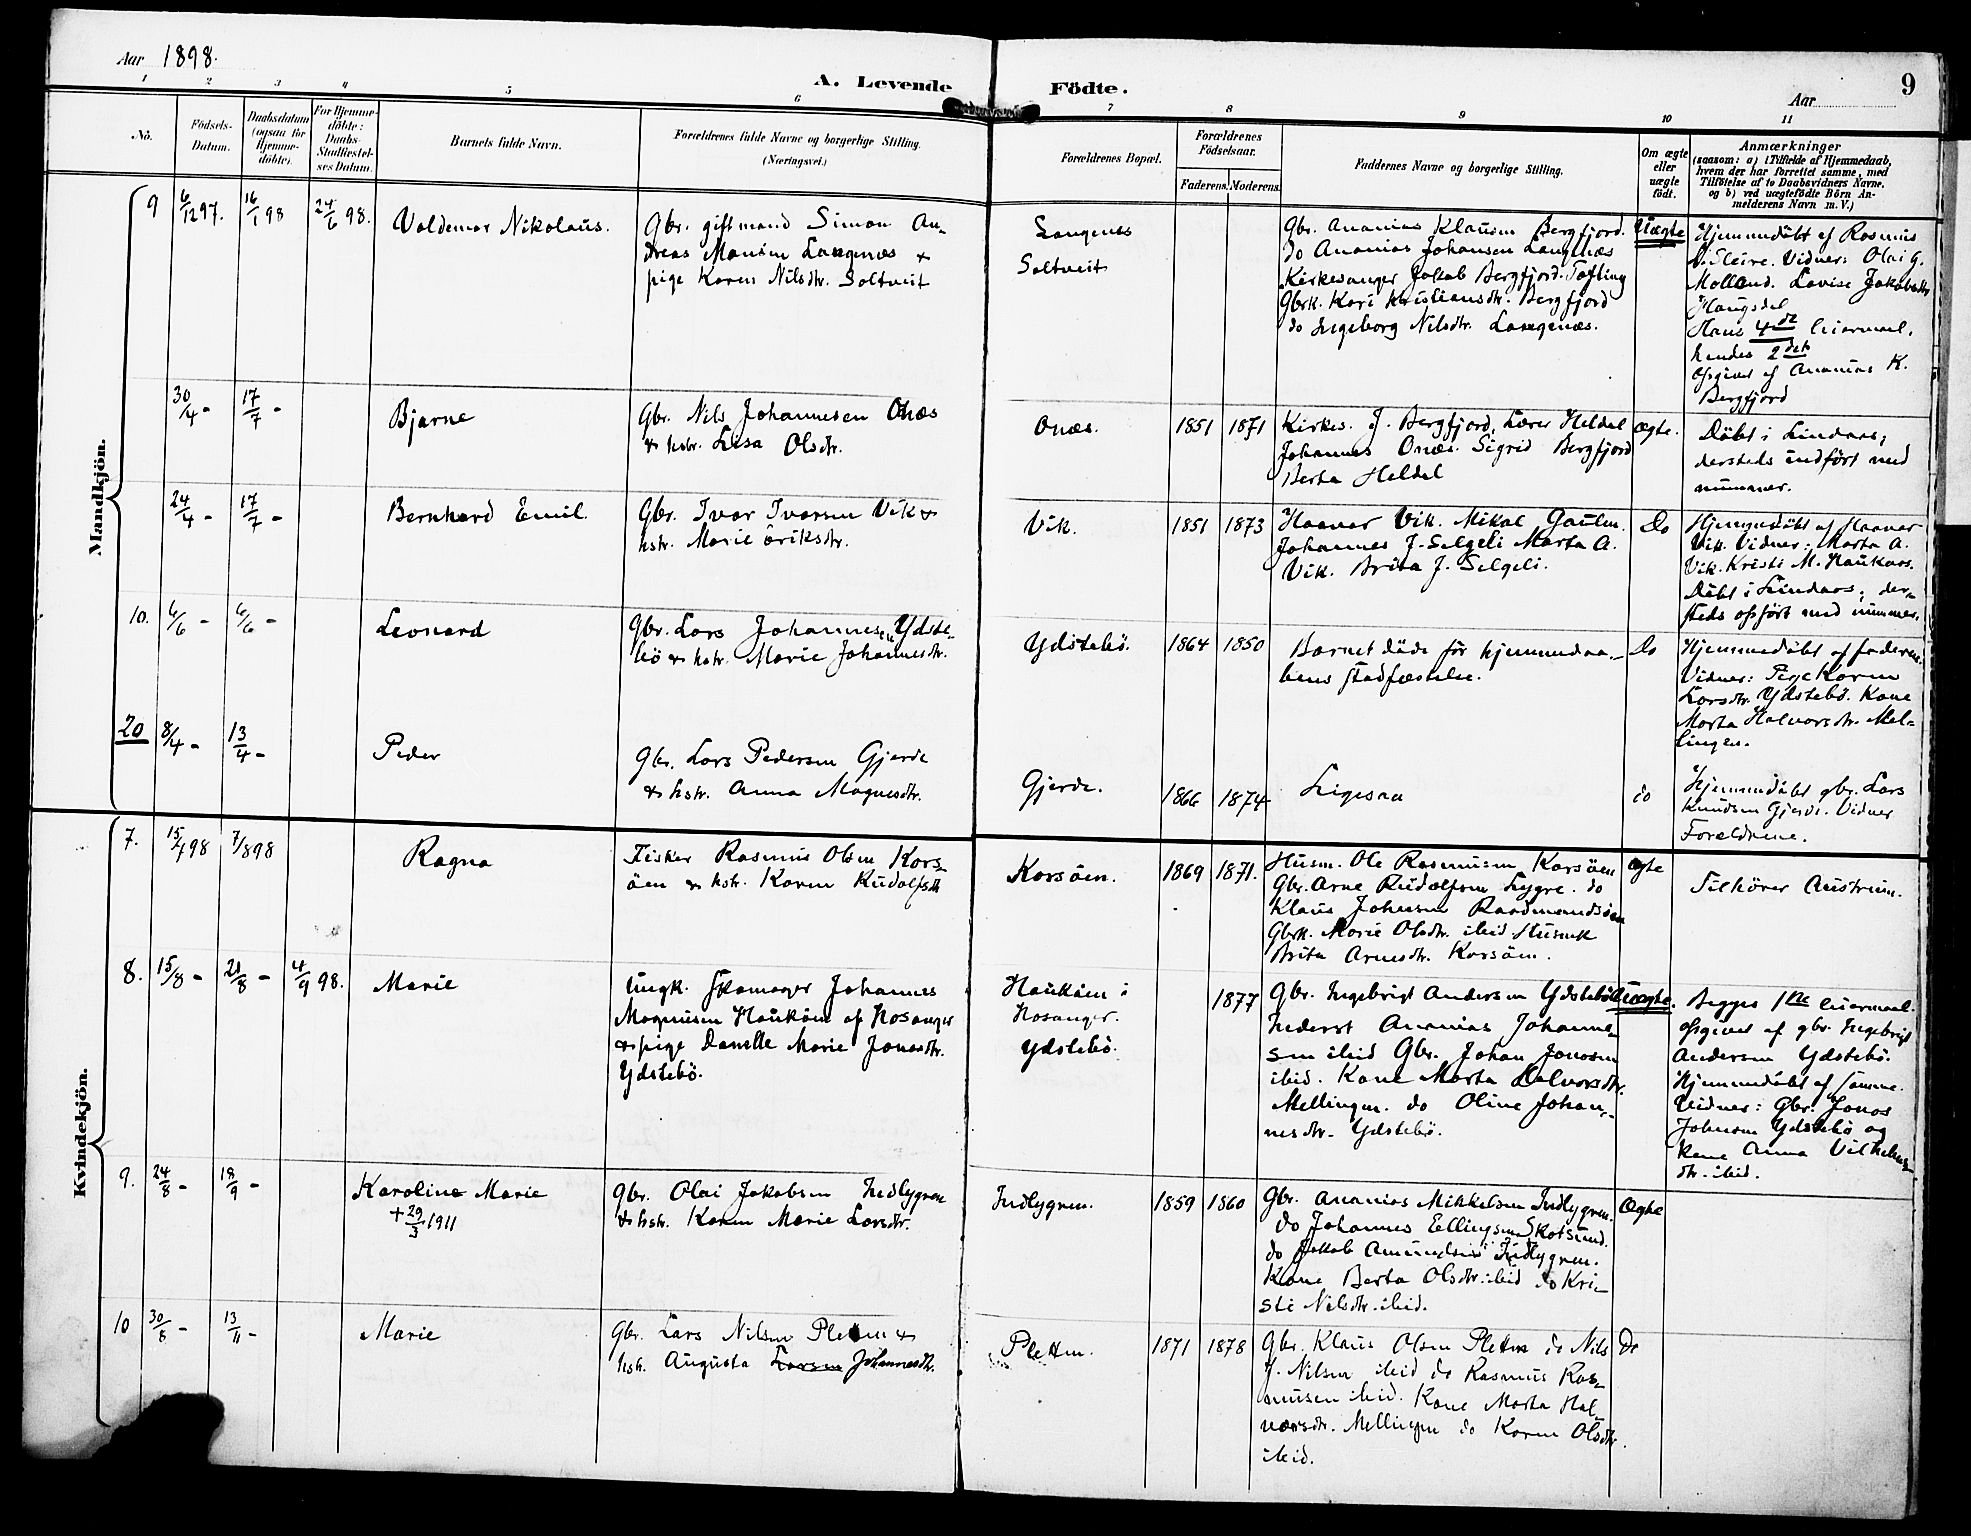 Aar 1898.
A. Levende Födte.
Aar
9
1 2 3 4 5 6 7 8 9 10 11
No.
Födsels-
Datum.
Daabsdatum
(ogsaa for
Hjemme-
döbte).
For Hjemme-
döbte:
Daabs-
Stadfæstel-
ses Datum.
Barnets fulde Navn.
Forældrenes fulde Navne og borgerlige Stilling.
(Næringsvei.)
Forældrenes Bopæl.
Forældrenes
Födselsaar.
Faderens. Moderens.
Faddernes Navne og borgerlige Stilling.
Om ægte
eller
uægte
födt.
Anmærkninger
(saasom: a) i Tilfælde af Hjemmedaab,
hvem der har forrettet samme, med
Tilföielse af to Daabsvidners Navne.
og b) ved uægtefödte Börn An-
melderens Navn m. V.)
Mandkjön.
9 6/12 97. 16/1 98 24/6 98. Valdemar Nikolaus.
Gbr. giftmand Simon An-
dreas Monsen Langenæs &
pige Karen Nilsdtr. Soltveit
Langenæs
Soltveit
Gbr. Ananias Klausen Bergfjord.
do Ananias Johansen Langenæs
Kirkesanger Jakob Bergfjord. Tofting
Gbrk. Kari Kristiansdtr. Bergfjord
do Ingeborg Nilsdtr. Langenæs.
Uægte
Hjemmedöbt af Rasmus
Sleire. Vidner: Olai G.
Molland. Lovise Jakobsdtr
Haugsdal
Hans 4de leiermaal,
hendes 2det
Opgivet af Ananias K.
Bergfjord
30/4 - 17/7 - Bjarne
Gbr. Nils Johannesen Onæs
& hstr. Lisa Olsdtr.
Onæs. 1851 1871
Kirkes. J. Bergfjord, Lærer Heldal
Johannes Onæs. Sigrid Bergfjord
Berta Heldal
Ægte.
Döbt i Lindaas,
dersteds indfört med
nummer.
24/4 - 17/7 - Bernhard Emil.
Gbr. Ivar Ivarsen Vik &
hstr. Marie Eriksdtr.
Vik. 1851 1873
Haavar Vik. Mikal Gaulen.
Johannes J. Selgeli Marta A.
Vik. Brita J. Selgeli.
Do
Hjemmedöbt af Haavar
Vik. Vidner: Marta A.
Vik. Kristi M. Haukaas.
Döbt i Lindaas, der-
steds opfört med nummer.
10. 6/6 - 6/6 - Leonard
Gbr. Lars Johannesen Ydste-
bö & hstr. Marie Johannesdtr.
Ydstebö. 1864 1850
Barnet döde för hjemmedaa-
bens stadfæstelse.
Do
Hjemmedöbt af faderen.
Vidner: Pige Karen
Larsdtr. Ydstebö. Kone
Marta Halvorsdtr. Mel-
lingen.
20 8/4 - 13/4 - Peder
Gbr. Lars Pedersen Gjerde
& hstr. Anna Magnesdtr.
Gjerde. 1866 1874
Ligesaa
do
Hjemmedöbt gbr. Lars
Knudsen Gjerde. Vidner
Forældrene.
Kvindekjön.
7. 15/7 98 7/8 98 Ragna
Fisker Rasmus Olsen Kors-
öen & hstr. Karen Rudolfsdtr
Korsöen. 1869 1871.
Husm. Ole Rasmussen Korsöen
Gbr. Arne Rudolfsen Lygre. do
Klaus Johnsen Raadmandsöen
Gbrk. Marie Olsdtr. ibid. Husmk
Brita Arnesdtr. Korsöen.
Ægte
Tilhörer Austrheim.
8. 15/8 - 21/8 - 4/9 98. Marie
Ungk. Skomager Johannes
Magnusen Hauköen af Hosanger
& pige Danelle Marie Jonasdtr.
Ydstebö.
Hauköen i
Hosanger.
Ydstebö.
1877
Gbr. Ingebrigt Andersen Ydstebö
Inderst Ananias Johanne-
sen ibid Gbr. Johan Jonasen
ibid. Kone Marta Halvorsdtr.
Mellingen. do Oline Johan-
nesdtr. Ydstebö.
Uægte.
Begges 1ste leiermaal
opgivet af gbr. Ingebrigt
Andersen Ydstebö.
Hjemmedöbt af samme.
Vidner: Gbr. Jonas
Johnsen Ydstebö og
Kone Anna Vilhelms-
dtr. ibid.
9. 24/8 - 18/9 - Karoline Marie
+ 29/3 1911
Gbr. Olai Jakobsen Indlygren
& hstr. Karen Marie Larsdtr.
Indlygren. 1859 1860
Gbr. Ananias Mikkelsen Indlygren.
Do Johannes Ellingsen Skotsund.
do Jakob Amundsen Indlygren.
Kone Berta Olsdtr. ibid do Kri-
sti Nilsdtr. ibid.
Ægte
10 30/8 - 13/11 - Marie
Gbr. Lars Nilsen Pletten &
hstr. Augusta Larsen Johannesdtr.
Pletten. 1871 1878
Gbr. Klaus Olsen Pletten do Nils
J. Nilsen ibid do Rasmus Ras-
mussen ibid. Kone Marta Hal-
vorsdtr. Mellingen do Karen Olsdtr.
ibid.
Do